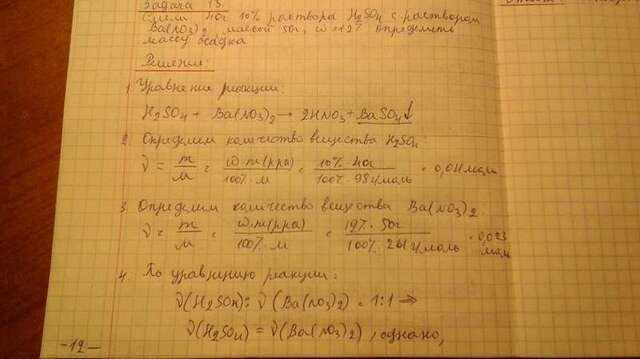 Задача 13.
Смеш 40г 10% раствора H₂SO₄ с раствором
Ba(NO₃)₂ массой 50г, ω=12% Определить
массу осадка
Решение:
1 Уравнение реакции:
H₂SO₄ + Ba(NO₃)₂ → 2HNO₃ + BaSO₄↓
2. Определим количество вещества H₂SO₄
ν = m/M = ω·m(рра)/100%·M = 10%·40г/100%·98г/моль = 0,041моль
3. Определим количество вещества Ba(NO₃)₂
ν = m/M = ω·m(рра)/100%·M = 12%·50г/100%·261г/моль = 0,023 моль
4. По уравнению реакции:
ν(H₂SO₄):ν(Ba(NO₃)₂) = 1:1 ⇒
ν(H₂SO₄) = ν(Ba(NO₃)₂), однако,
-12-